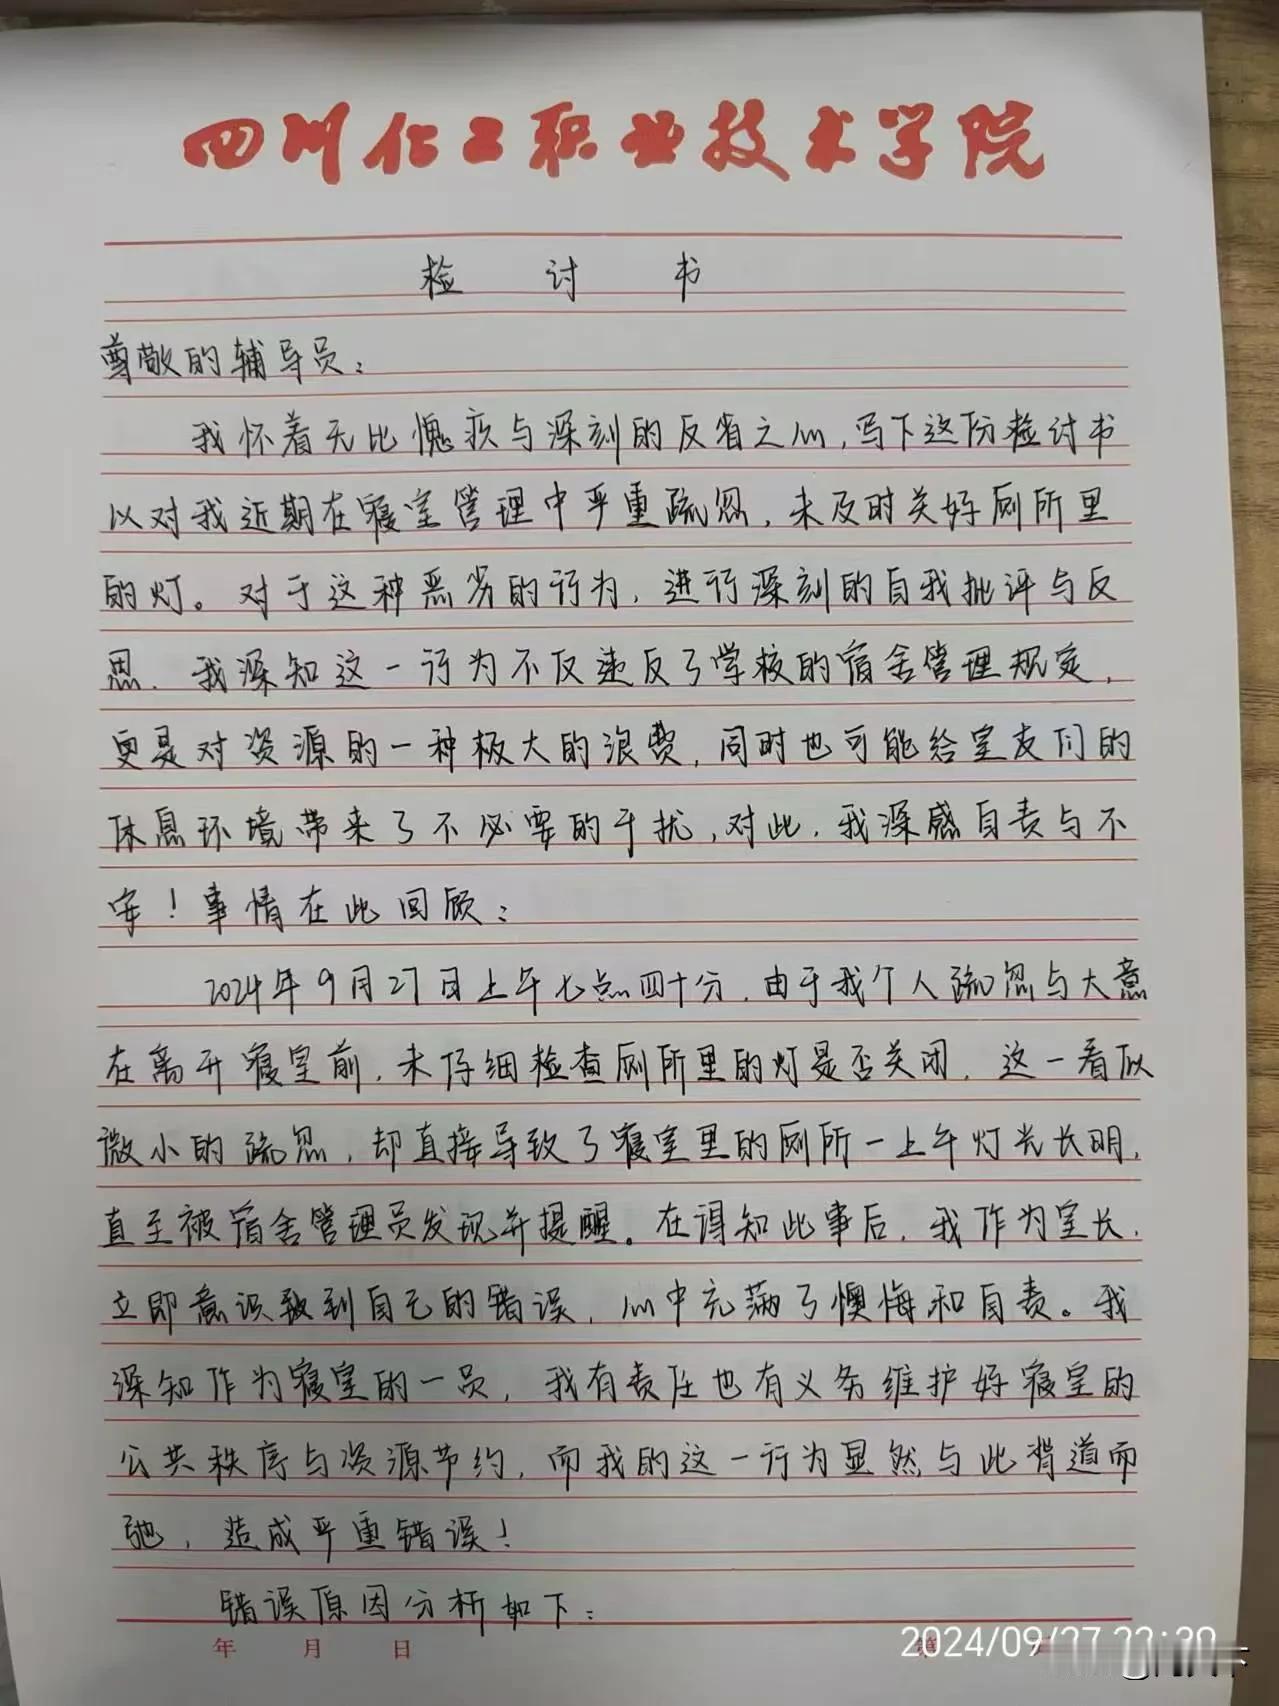 四川化工职业技术学院
检 讨 书
尊敬的辅导员：
我怀着无比愧疚与深刻的反省之心，写下这份检讨书
以对我近期在寝室管理中严重疏忽，未及时关好厕所里
的灯。对于这种恶劣的行为，进行深刻的自我批评与反
思，我深知这一行为不反违反了学校的宿舍管理规定，
更是对资源的一种极大的浪费，同时也可能给室友们的
休息环境带来了不必要的干扰，对此，我深感自责与不
安！事情在此回顾：
2024年9月27日上午七点四十分，由于我个人疏忽与大意
在离开寝室前，未仔细检查厕所里的灯是否关闭，这一看似
微小的疏忽，却直接导致了寝室里的厕所一上午灯光长明，
直至被宿舍管理员发现并提醒。在得知此事后，我作为室长，
立即意识致到自己的错误，心中充满了懊悔和自责。我
深知作为寝室的一员，我有责任也有义务维护好寝室的
公共秩序与资源节约，而我的这一行为显然与此背道而
驰，造成严重错误！
错误原因分析如下：
年 月 日 第
2024/09/27